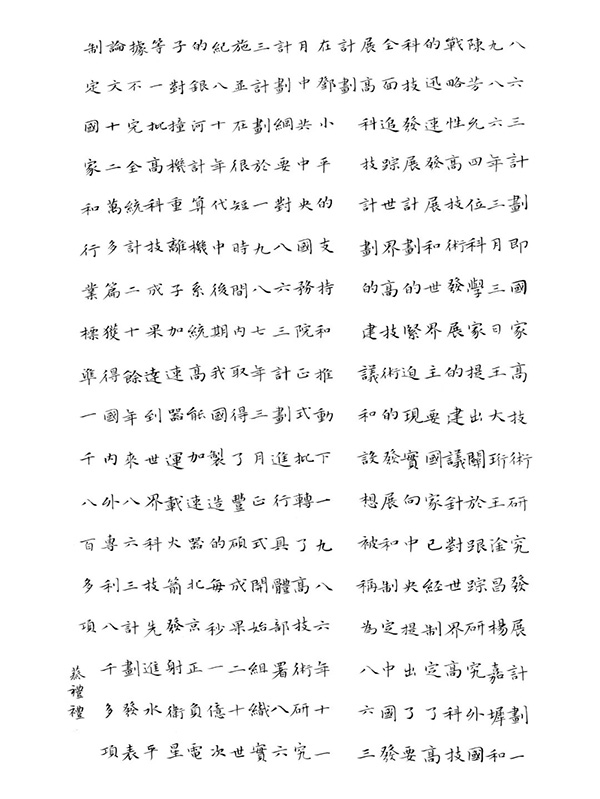 八六三計劃即國家高技術研究發展計劃一
九八六年三月三日王大珩王淦昌楊嘉墀和
陳芳允四位科學家提出關於跟踪研究外國
戰略性高技術發展的建議針對世界高科技
的迅速發展和世界主要國家已經制定了高
科技發展計劃的緊迫現實向中央提出了要
全面追踪世界高技術的發展和制定中國發
展高科技計劃的建議和設想被稱為八六三
計劃
在鄧小平的支持和推動下一九八六年十一
月中共中央國務院正式批轉了高技術研究
計劃綱要對八六三計劃進行具體部署八六
三計劃於一九八七年三月正式開始組織實
施並在很短時間內取得了豐碩成果二十世
紀八十年代中後期我國製造的每秒一億次
的銀河計算機系統高能加速器北京正負電
子對撞機重離子加速器運載火箭發射衛星
等一批高科技成果達到世界先進水平
據不完全統計二十餘年來八六三計劃發表
論文十二萬多篇獲得國內外專利八千多項
制定國家和行業標準一千八百多項
蔡禮禮